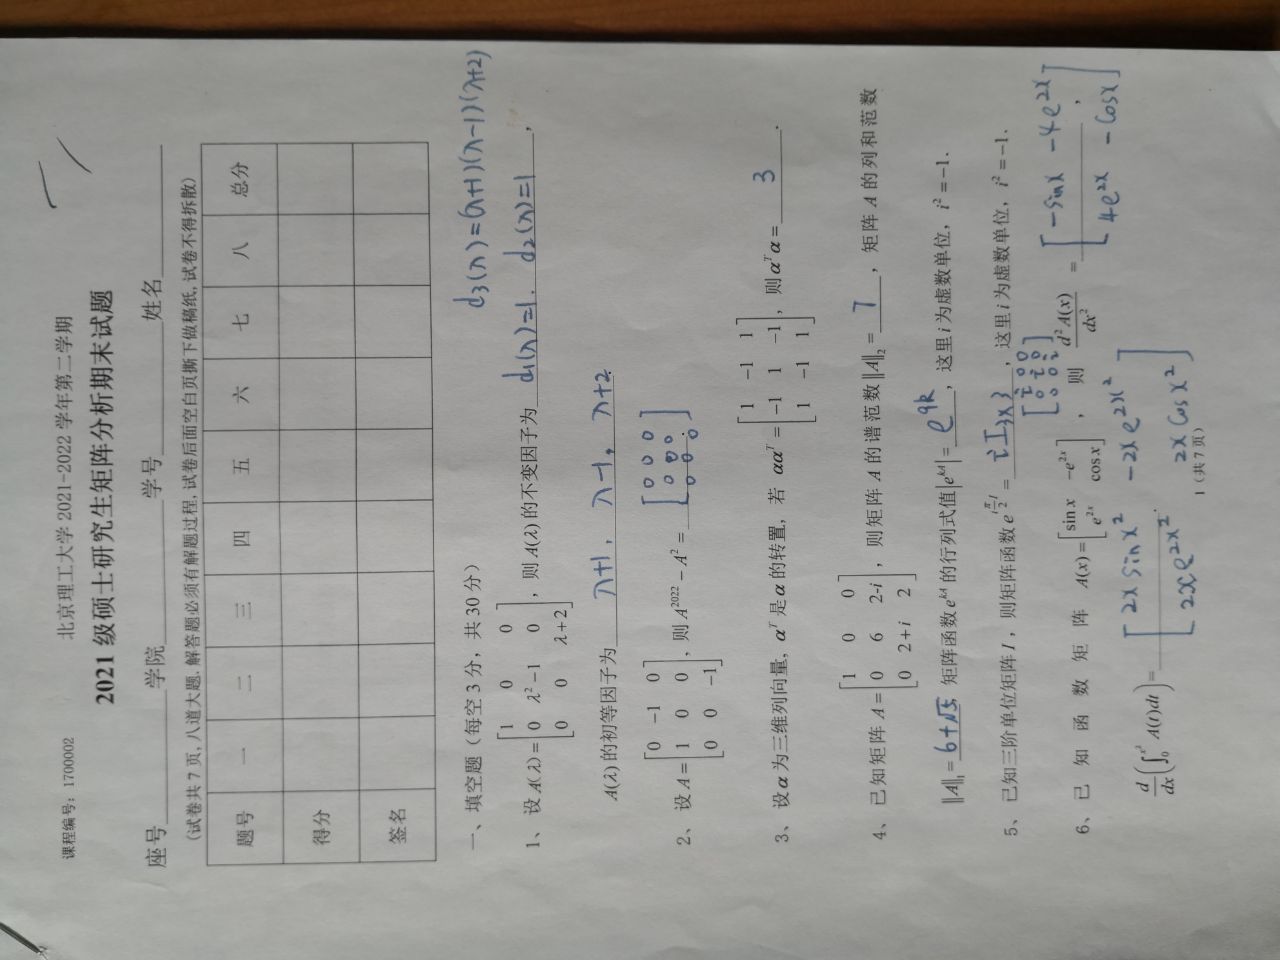 课程编号：1700002
北京理工大学 2021-2022 学年第二学期
2021 级硕士研究生矩阵分析期末试题
座号__________ 学院__________ 学号__________ 姓名__________
(试卷共 7 页, 八道大题. 解答题必须有解题过程, 试卷后面空白页撕下做稿纸, 试卷不得拆散)
题号 一 二 三 四 五 六 七 八 总分
得分
签名
一、填空题（每空 3 分，共 30 分）
d₃(λ)=(λ+1)(λ-1)(λ+2)
1、设 A(λ)=[1 0 0; 0 λ²-1 0; 0 0 λ+2]，则 A(λ) 的不变因子为 d₁(λ)=1. d₂(λ)=1，
A(λ) 的初等因子为 λ+1, λ-1, λ+2.
2、设 A=[0 -1 0; 1 0 0; 0 0 -1], 则 A²⁰²² - A² = [0 0 0; 0 0 0; 0 0 0].
3、设 α 为三维列向量, αᵀ 是 α 的转置, 若 ααᵀ=[1 -1 1; -1 1 -1; 1 -1 1], 则 αᵀα= 3.
4、已知矩阵 A=[1 0 0; 0 6 2-i; 0 2+i 2]，则矩阵 A 的谱范数 ‖A‖₂= 7，矩阵 A 的列和范数
‖A‖₁= 6+√5, 矩阵函数 e^{kA} 的行列式值 |e^{kA}|= e^{9k}，这里 i 为虚数单位，i²=-1.
5、已知三阶单位矩阵 I，则矩阵函数 e^{i\frac{π}{2}I}= iI₃ₓ₃，这里 i 为虚数单位，i²=-1.
[i 0 0; 0 i 0; 0 0 i]
6、已知函数矩阵 A(x)=[sin x -e^{2x}; e^{2x} cos x]，则 d²A(x)/dx² = [-sinx -4e^{2x}; 4e^{2x} -cosx]，
d/dx(∫₀^{x²} A(t)dt)= [2x sinx² -2xe^{2x²}; 2xe^{2x²} 2x cosx²].
1（共 7 页）